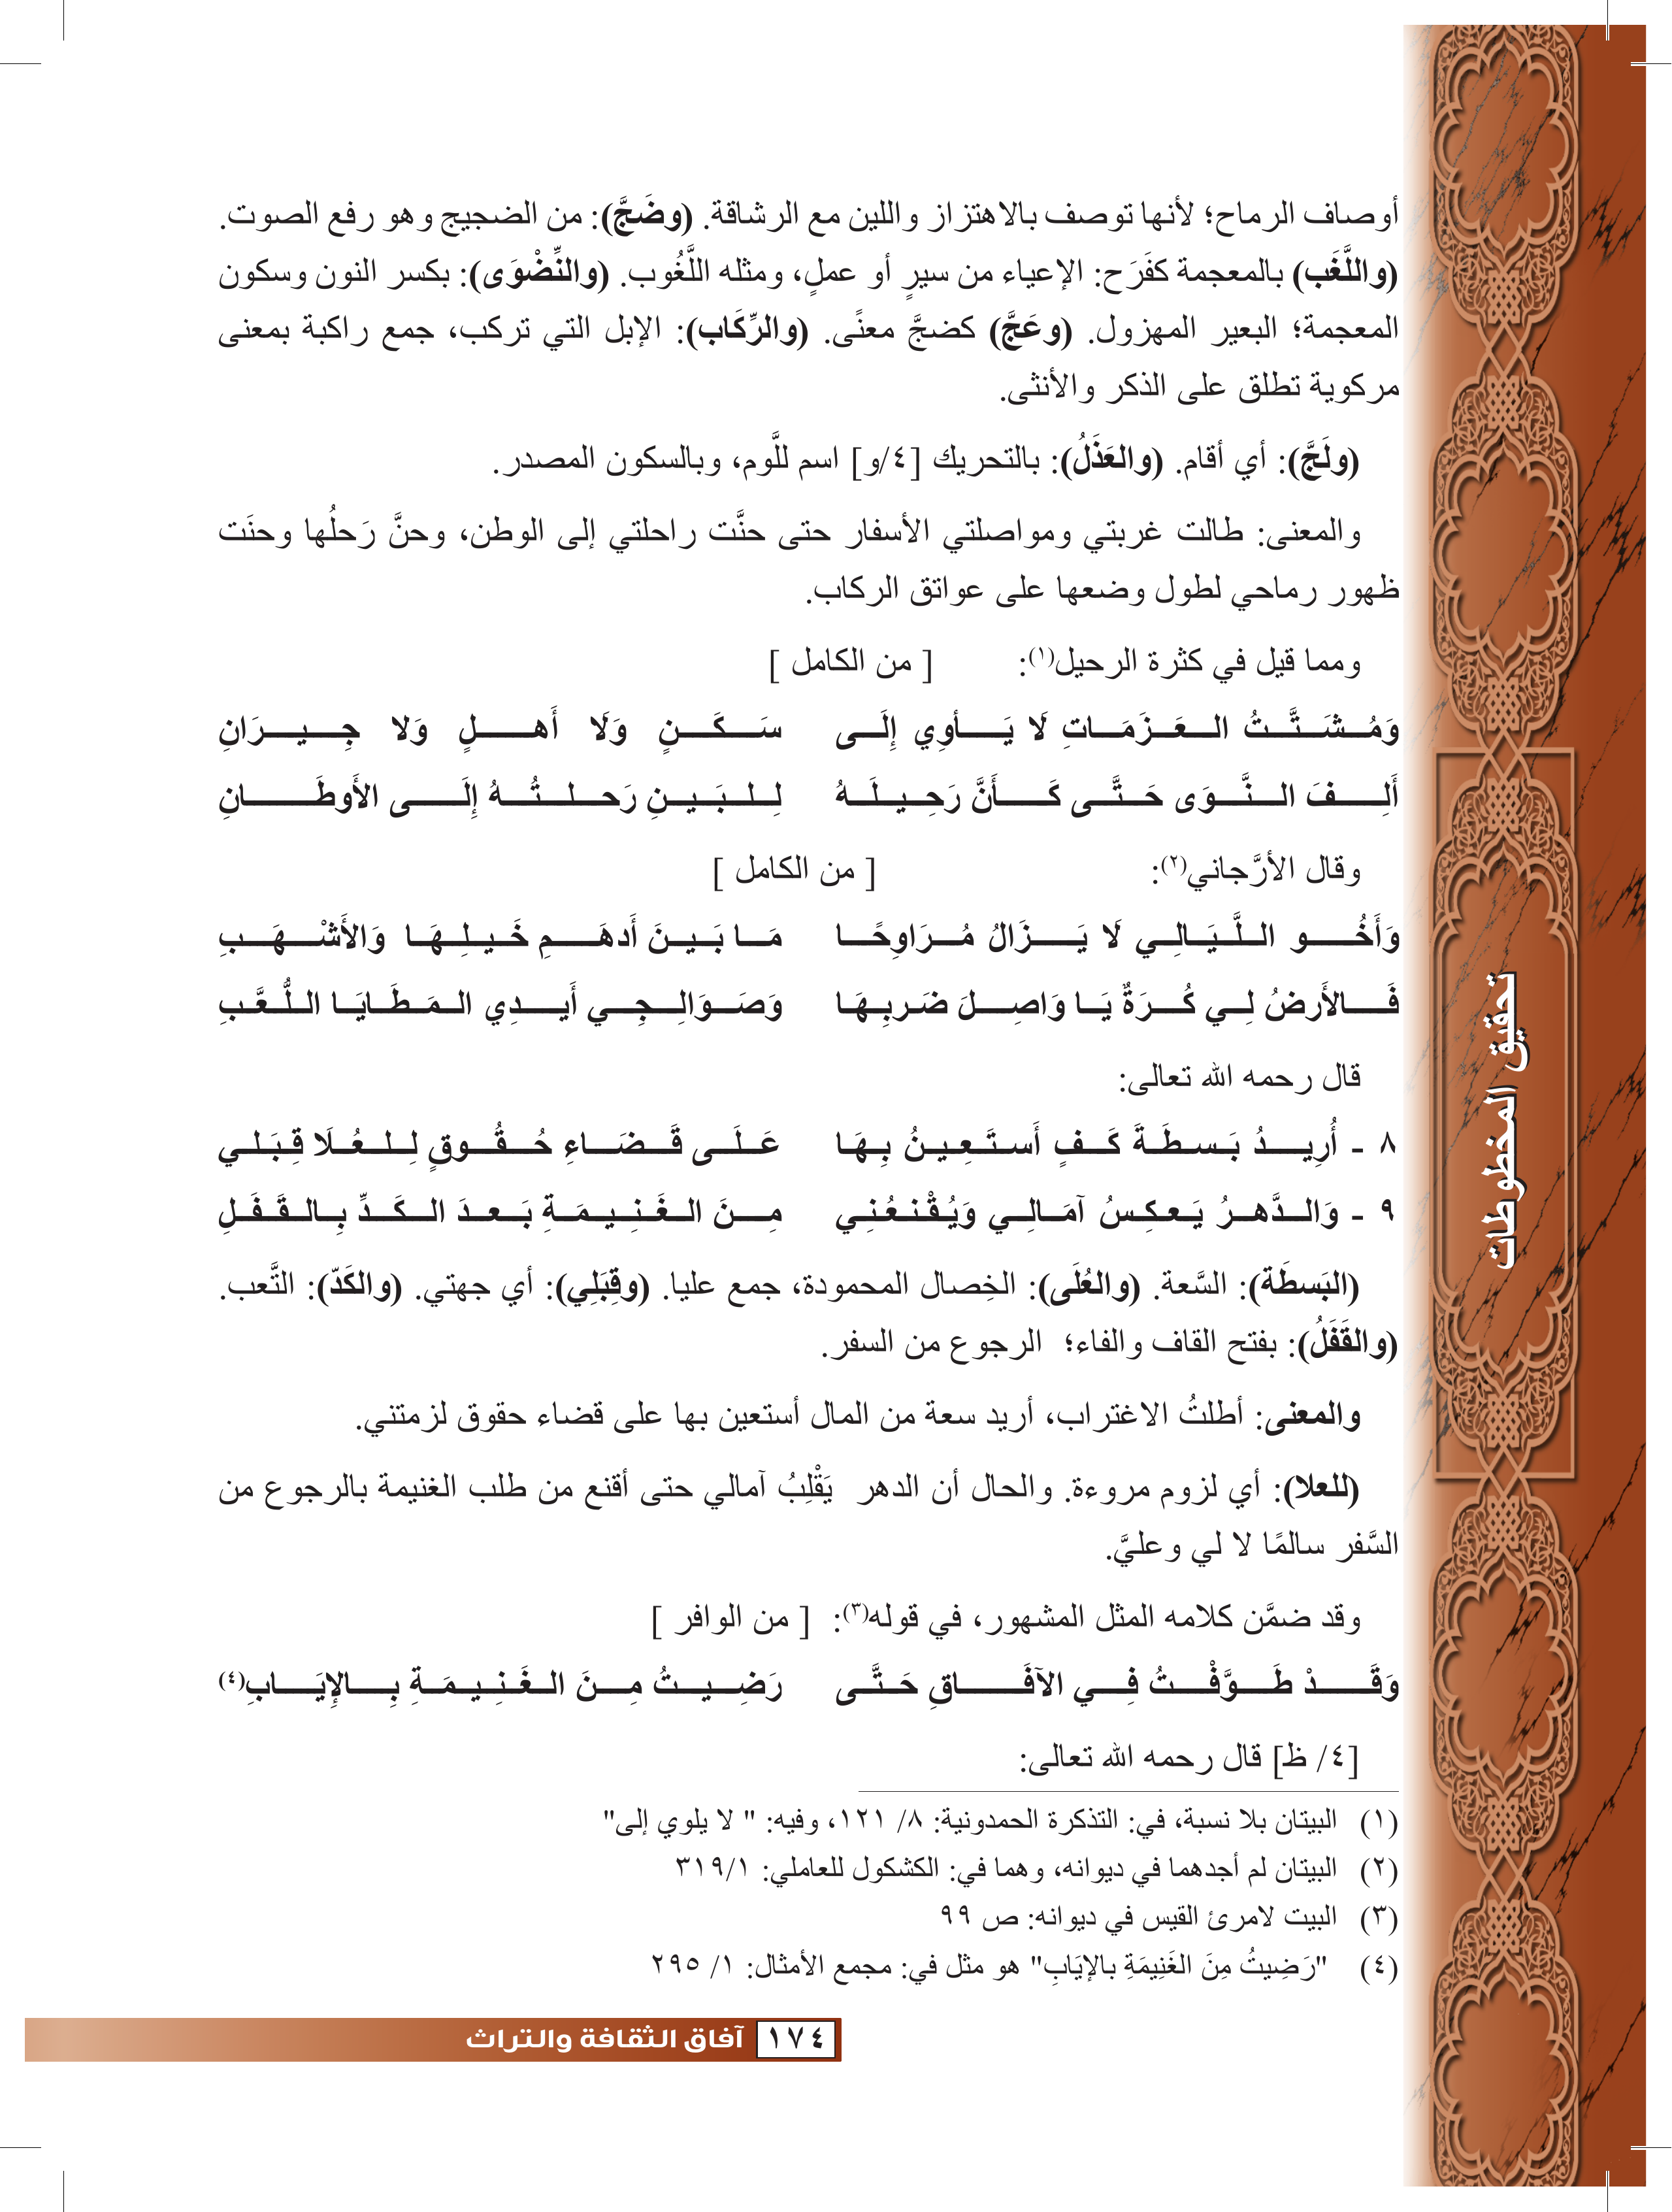 أوصاف الرماح؛ لأنها توصف بالاهتزاز واللين مع الرشاقة. (وضَجَّ): من الضجيج وهو رفع الصوت.
(واللَّغَب) بالمعجمة كفَرَح: الإعياء من سيرٍ أو عملٍ، ومثله اللَّغُوب. (والنِّضْوَى): بكسر النون وسكون
المعجمة؛ البعير المهزول. (وعَجَّ) كضجَّ معنًى. (والرِّكَاب): الإبل التي تركب، جمع راكبة بمعنى
مركوبة تطلق على الذكر والأنثى.
(ولَجَّ): أي أقام. (والعَذَلُ): بالتحريك [٤/و] اسم للَّوم، وبالسكون المصدر.
والمعنى: طالت غربتي ومواصلتي الأسفار حتى حنَّت راحلتي إلى الوطن، وحنَّ رَحلُها وحنَت
ظهور رماحي لطول وضعها على عواتق الركاب.
ومما قيل في كثرة الرحيل(١): [ من الكامل ]
وَمُشَتَّتُ العَزَمَاتِ لَا يَأوِي إِلَى سَكَنٍ وَلَا أَهلٍ وَلا جِيرَانِ
أَلِفَ النَّوَى حَتَّى كَأَنَّ رَحِيلَهُ لِلبَينِ رَحلتُهُ إِلَى الأَوطَانِ
وقال الأرَّجاني(٢): [ من الكامل ]
وَأَخُو اللَّيَالِي لَا يَزَالُ مُرَاوِحًا مَا بَينَ أَدهَمِ خَيلِهَا وَالأَشْهَبِ
فَالأَرضُ لِي كُرَةٌ يَا وَاصِلَ ضَربِهَا وَصَوَالِجِي أَيدِي المَطَايَا اللُّعَّبِ
قال رحمه الله تعالى:
٨ - أُرِيدُ بَسطَةَ كَفٍ أَستَعِينُ بِهَا عَلَى قَضَاءِ حُقُوقٍ لِلعُلَا قِبَلي
٩ - وَالدَّهرُ يَعكِسُ آمَالِي وَيُقْنعُنِي مِنَ الغَنِيمَةِ بَعدَ الكَدِّ بِالقَفَلِ
(البَسطَة): السَّعة. (والعُلَى): الخِصال المحمودة، جمع عليا. (وقِبَلِي): أي جهتي. (والكَدّ): التَّعب.
(والقَفَلُ): بفتح القاف والفاء؛ الرجوع من السفر.
والمعنى: أطلتُ الاغتراب، أريد سعة من المال أستعين بها على قضاء حقوق لزمتني.
(للعلا): أي لزوم مروءة. والحال أن الدهر يَقْلِبُ آمالي حتى أقنع من طلب الغنيمة بالرجوع من
السَّفر سالمًا لا لي وعليَّ.
وقد ضمَّن كلامه المثل المشهور، في قوله(٣): [ من الوافر ]
وَقَدْ طَوَّفْتُ فِي الآفَاقِ حَتَّى رَضِيتُ مِنَ الغَنِيمَةِ بِالإِيَابِ(٤)
[٤/ ظ] قال رحمه الله تعالى:
(١) البيتان بلا نسبة، في: التذكرة الحمدونية: ٨/ ١٢١، وفيه: " لا يلوي إلى"
(٢) البيتان لم أجدهما في ديوانه، وهما في: الكشكول للعاملي: ٣١٩/١
(٣) البيت لامرئ القيس في ديوانه: ص ٩٩
(٤) "رَضِيتُ مِنَ الغَنِيمَةِ بالإيَابِ" هو مثل في: مجمع الأمثال: ١/ ٢٩٥
١٧٤ آفاق الثقافة والتراث
تحقيق المخطوطات